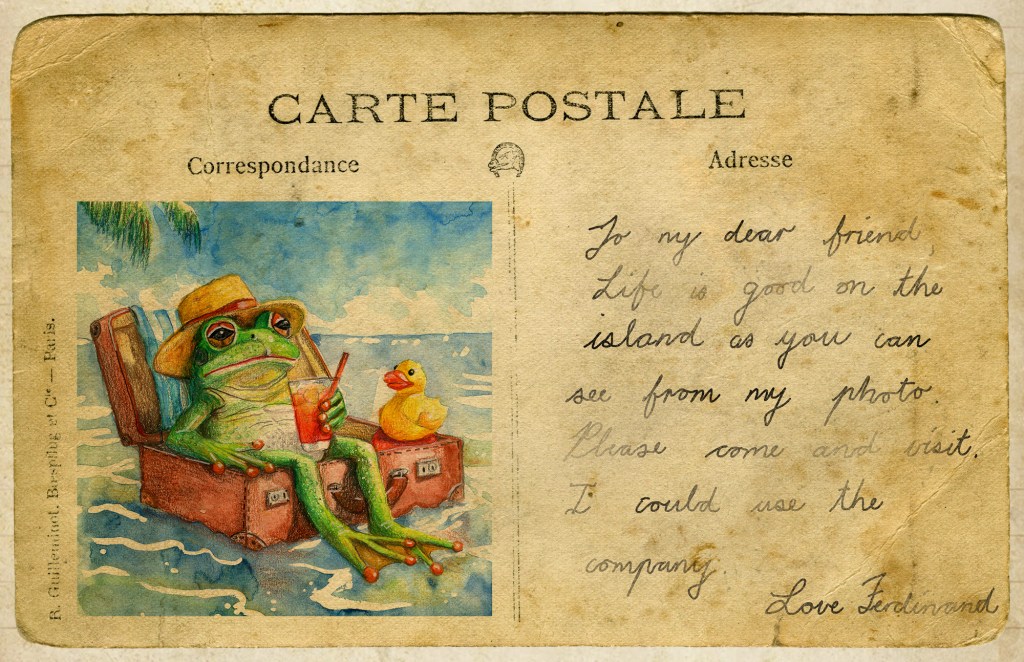 CARTE POSTALE
Correspondance
Adresse
R. Guilleminot, Bœspflug et Cie — Paris.
To my dear friend,
Life is good on the
island as you can
see from my photo.
Please come and visit.
I could use the
company.
Love Ferdinand